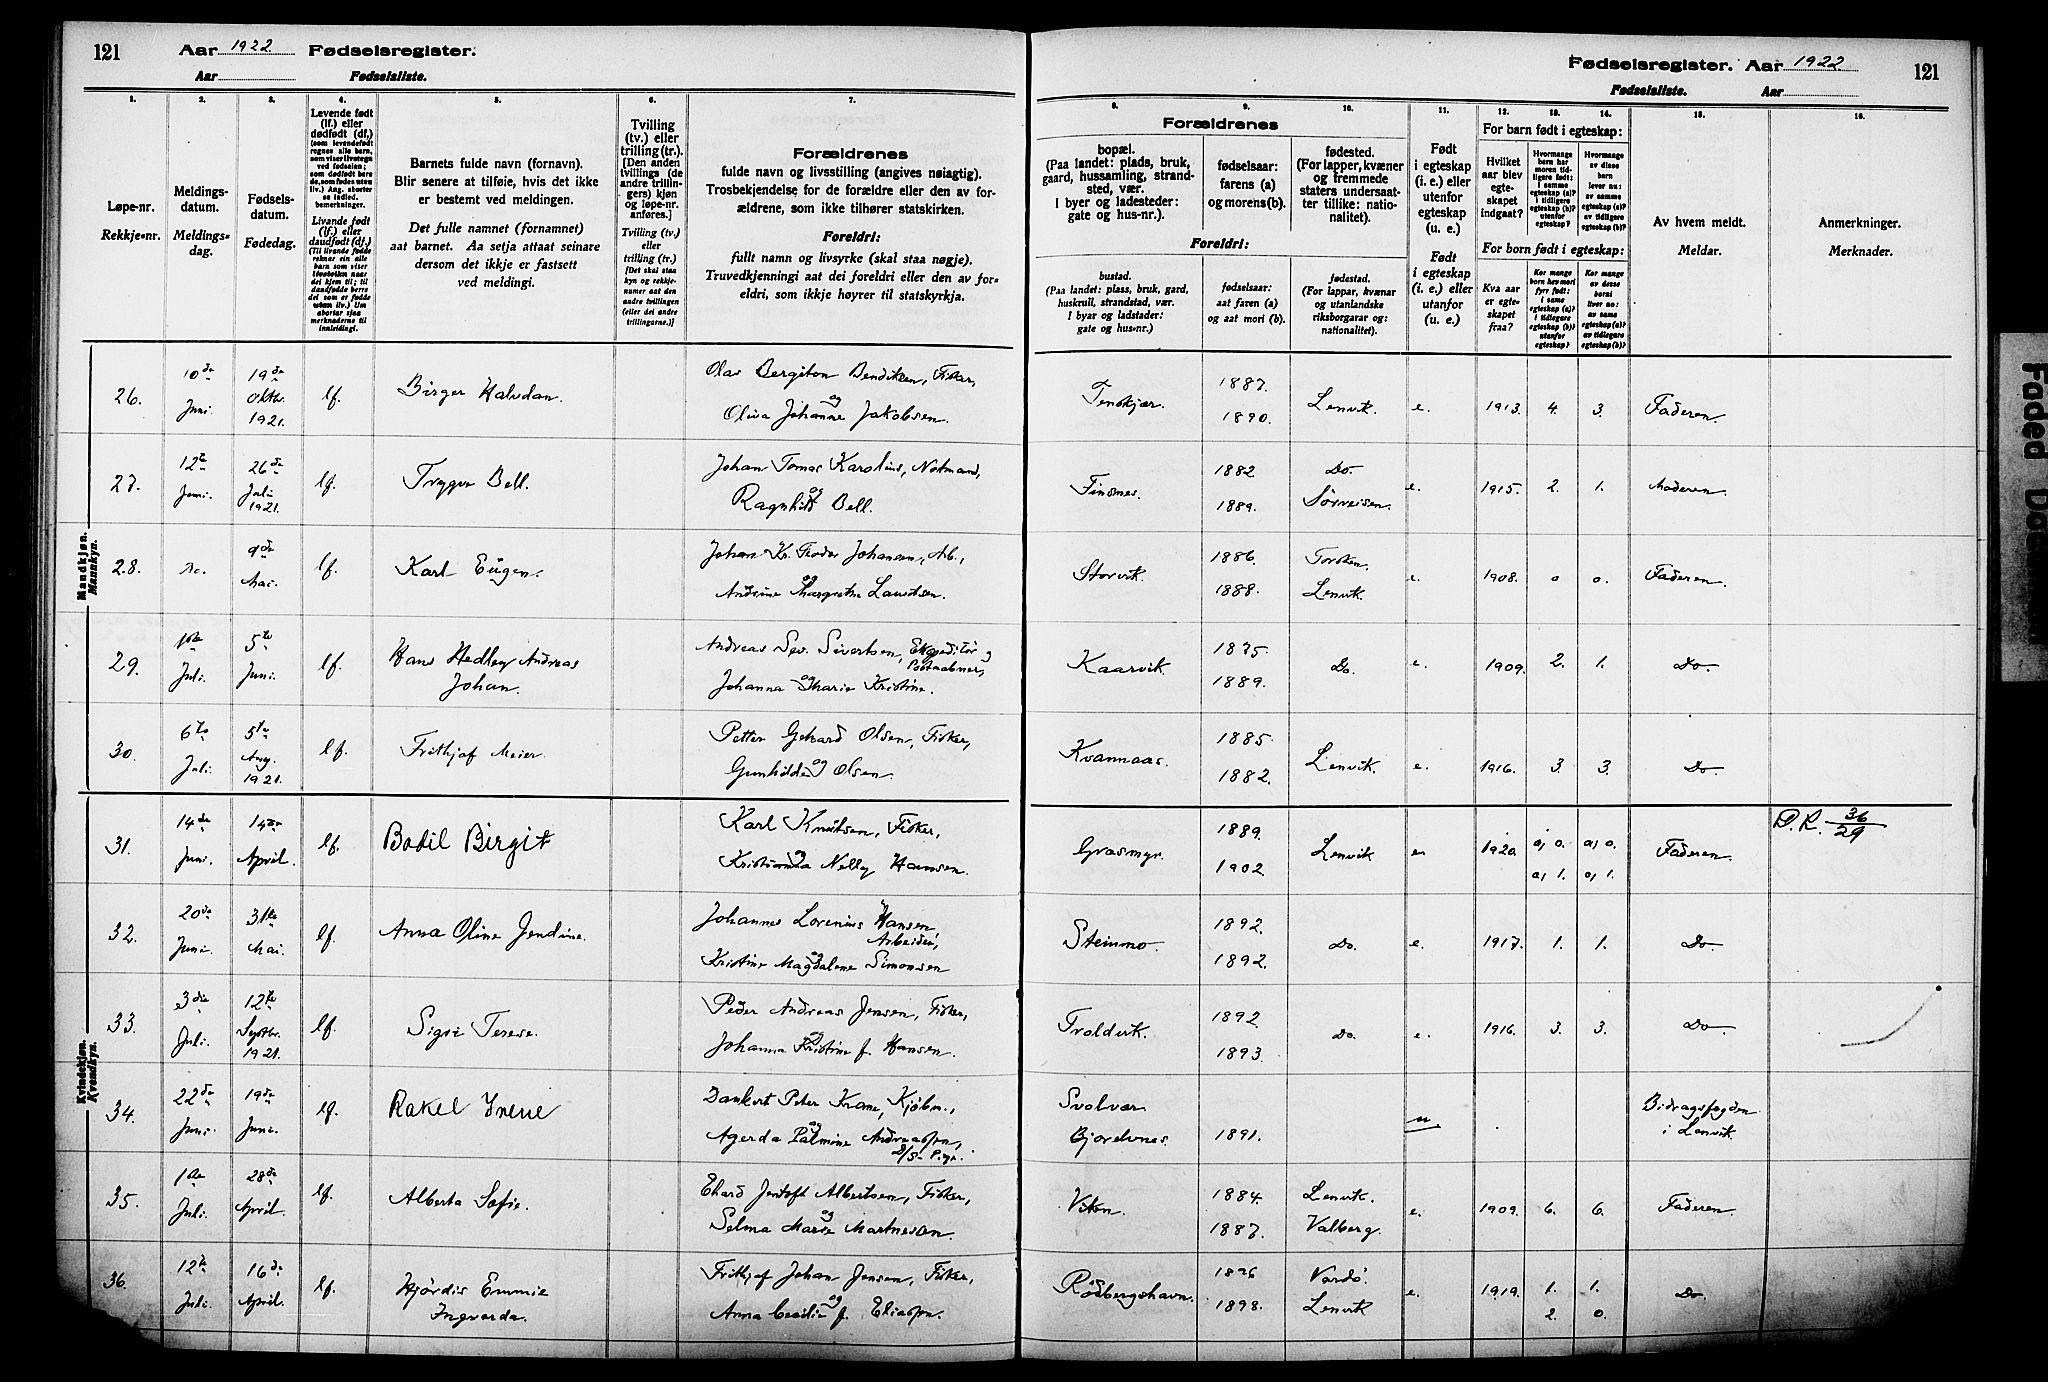 121 Aar 1922. Fødselsregister.
Aar Fødselsliste.
Fødselsregister. Aar 1922 121
Fødselsliste. Aar
1. 2. 3. 4. 5. 6. 7.
Løpe-nr.
Rekkje-nr.
Meldings-
datum.
Meldings-
dag.
Fødsels-
datum.
Fødedag.
Levende født
(lf.) eller
dødfødt (df.)
Livande født
(lf.) eller
daudfødt (df.)
Barnets fulde navn (fornavn).
Blir senere at tilføie, hvis det ikke
er bestemt ved meldingen.
Det fulle namnet (fornamnet)
aat barnet. Aa setja attaat seinare
dersom det ikkje er fastsett
ved meldingi.
Tvilling
(tv.) eller
trilling (tr.).
[Den anden
tvillings (de
andre trillin-
gers) kjøn
og løpe-nr.
anføres.]
Tvilling (tv.)
eller
trilling (tr.)
[Det skal staa
kyn og rekkje-
numer aat den
andre tvillingen
(eller dei andre
trillingarne.)]
Forældrenes
fulde navn og livsstilling (angives nøiagtig).
Trosbekjendelse for de forældre eller den av for-
ældrene, som ikke tilhører statskirken.
Foreldri:
fullt namn og livsyrke (skal staa nøgje).
Truvedkjenningi aat dei foreldri eller den av for-
eldri, som ikkje høyrer til statskyrkja.
8. 9. 10. 11. 12. 13. 14. 15. 16.
Forældrenes
bopæl.
(Paa landet: plads, bruk,
gaard, hussamling, strand-
sted, vær.
I byer og ladesteder:
gate og hus-nr.).
fødselsaar:
farens (a)
og morens (b).
fødested.
(For lapper, kvæner
og fremmede
staters undersaat-
ter tillike: natio-
nalitet).
Foreldri:
bustad.
(Paa landet: plass, bruk, gard,
huskrull, strandstad, vær.
I byar og ladstader:
gate og hus-nr.)
fødselsaar:
aat faren (a)
og aat mori (b).
fødestad.
(For lappar, kvænar
og utanlandske
riksborgarar og:
nationalitet).
Født
i egteskap
(i. e.) eller
utenfor
egteskap
(u. e.)
Født
i egteskap
(i. e.) eller
utanfor
egteskap
(u. e.)
For barn født i egteskap:
Hvilket
aar blev
egte-
skapet
indgaat?
For born født i egteskap:
Kva aar
er egte-
skapet
fraa?
Av hvem meldt.
Meldar.
Anmerkninger.
Merknader.
Mandkjøn.
Mannkyn.
26. 10de Juni. 19de Oktbr. 1921. lf. Birger Halvdan.
Olav Bergiton Bendiksen, Fisker,
og
Oliva Johanne Jakobsen.
1887. 1890. Lenvik. e. 1913. 4. 3. Faderen.
27. 12te Juni. 26de Juli 1921. lf. Trygve Bell.
Johan Tomas Karolius, Notmand,
og
Ragnhild Bell.
Finsnes. 1882 1889. Do. Sørreisen. e. 1915. 2. 1. Moderen.
28. Do. 9de Mai. lf. Karl Eugen.
Johan Kr. Teodor Johansen, Arb.,
og
Andrine Margrethe Lauritsen.
Storvik. 1886. 1888. Torsken. Lenvik. e. 1908. 0 0. Faderen.
29. 1ste Juli. 5te Juni. lf. Hans Hedley Andreas
Johan.
Andreas Sev. Sivertsen, Ekspeditør og
Postaabner,
og
Johanna Marie Kristine.
Kaarvik. 1875 1889. Do. e. 1909. 2. 1. Do.
30. 6te Juli. 5te Aug. 1921. lf. Frithjof Meier.
Petter Gehard Olsen, Fisker,
og
Gunhilda Olsen.
Kvannaas. 1885. 1882. Lenvik. e. 1916. 3. 3. Do.
Kvindekjøn.
Kvendkyn.
31. 14de Juni. 14de April. lf. Bodil Birgit
Karl Knutsen, Fisker,
og
Kristianna Nelly Hansen.
Grasmyr. 1889. 1902. Lenvik e. 1920. a, 0. a, 1. a, 0. a, 1. Faderen. D.R. 36/29
32. 20de Juni. 31te Mai. lf. Anna Oline Jendine.
Johannes Lorenius Hansen,
Arbeider,
og
Kristine Magdalene Simonsen
Steinmo. 1892. 1892. Do. e. 1917. 1. 1. Do.
33. 3die Juli. 12te Septbr. 1921. lf. Signe Terese.
Peder Andreas Jensen, Fisker,
og
Johanna Kristine f. Hansen.
Troldvik. 1892 1893. Do. e. 1916. 3. 3. Do.
34. 22de Juni. 19de Juni. lf. Rakel Irene
Dankert Peter Krane, Kjøbm.,
og
Agerda Palmine Andreassen,
Svolvær
Bjorelvnes. 1891. u. Bidragsfogden
i Lenvik.
35. 1ste Juli. 28de April. lf. Alberta Sofie.
Ehard Jentoft Albertsen, Fisker,
og
Selma Marie Martnessen.
Viken. 1884. 1887. Lenvik. Valberg. e. 1909. 6. 6. Faderen.
36. 12te Juli. 16de April. lf. Hjørdis Emmie
Ingvarda.
Frithjof Johan Jensen, Fisker,
og
Anna Cecilie f. Eliassen.
Rødbergshavn. 1896 1898. Vardø. Lenvik e. 1919. 1. 2. 1. 0. Do.